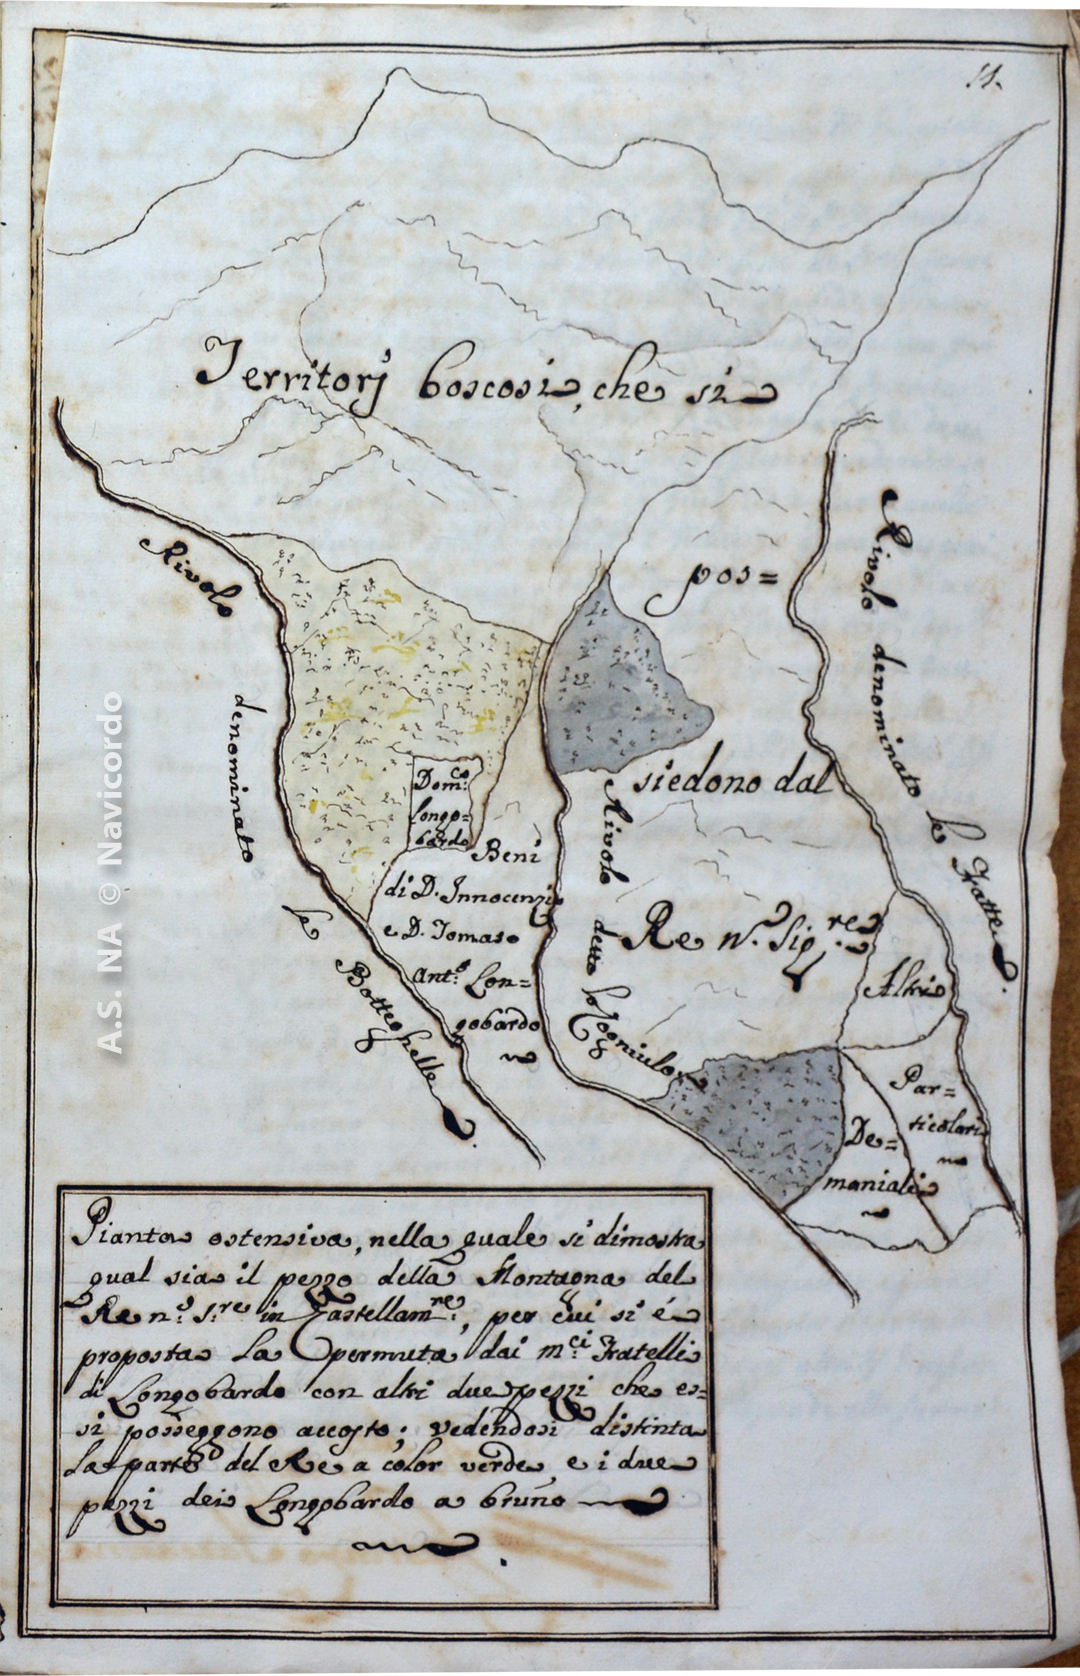 11.
Territorj boscosi, che si
pos=
siedono dal
Re N.º Sig.re
Rivolo
denominato
le
Botteghelle
Rivolo detto lo
Rivolo denominato le Fratte.
Dom.co
Longo=
bardo
Beni
di D. Innocenzio
e D. Tomaso
Ant.º Lon=
gobardo
Altri
Par=
ticolari
De=
maniali
Pianta ostensiva, nella quale si dimostra
qual sia il pezzo della Montagna del
Re n.º S.re in Castellam.re, per cui si é
proposta la permuta dai m.ci Fratelli
di Longobardo con altri due pezzi che es=
si posseggono accosto; vedendosi distinta
la parte del Re a color verde, e i due
pezzi dei Longobardo a bruno
A.S. NA © Navicordo